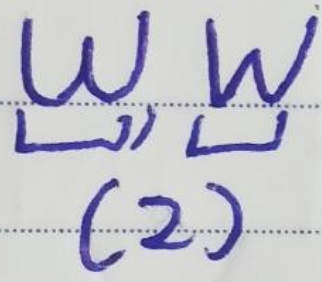 W W
(2)